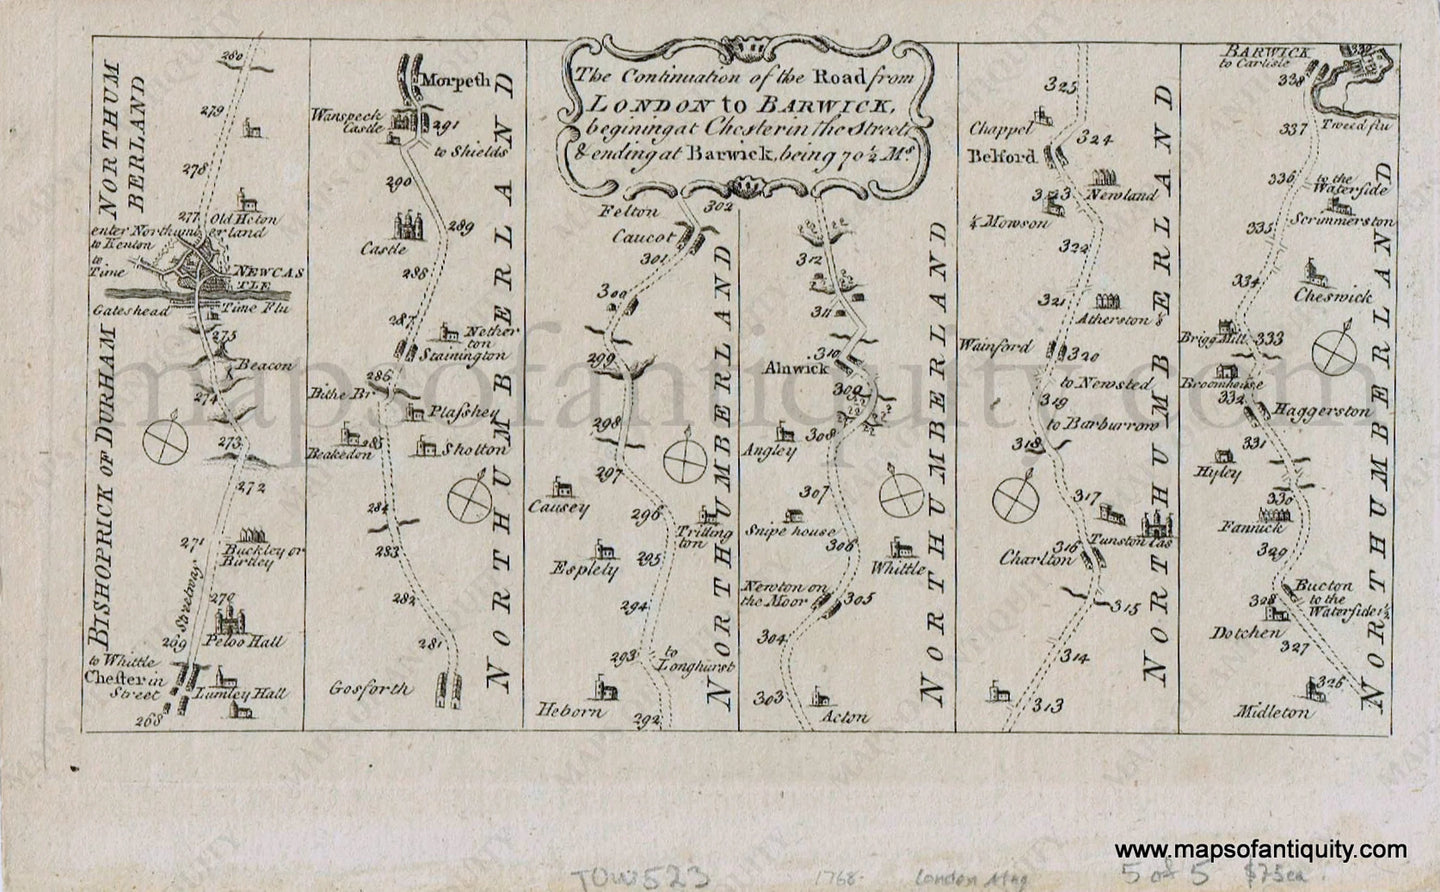 The Continuation of the Road from
LONDON to BARWICK,
begining at Chester in the Street
& ending at Barwick, being 70 1/2 Ms.
NORTHUM
BERLAND
280
279
278
277
Old Heton
enter Northum erland
to Kenton
to
Time
NEWCAS
TLE
Gateshead
Time Flu
275
Beacon
274
273
272
BISHOPRICK OF DURHAM
271
Buckley or
Birtley
Streetway
270
269
Peloo Hall
to Whittle
Chester in
Street
Lumley Hall
268
Morpeth
Wanspeck
Castle
291
to Shields
290
289
Castle
288
287
Nether
ton
Stainington
286
Bithe Br
Plasshey
285
Beakedon
Sholton
284
283
282
281
Gosforth
NORTHUMBERLAND
302
Felton
Caucot
301
300
299
298
297
Causey
296
Tritling
ton
295
Esplely
294
293
to
Longhurst
Heborn
292
NORTHUMBERLAND
312
311
310
Alnwick
309
308
Angley
307
Snipe house
306
Whittle
Newton on
the Moor
305
304
303
Acton
NORTHUMBERLAND
325
Chappel
324
Belford
323
Newland
1/4 Mowson
322
321
Atherston 1/8
Wainford
320
to Newsted
319
to Barburrow
318
317
Tunston Cas
316
Charlton
315
314
313
NORTHUMBERLAND
BARWICK
to Carlisle
339
338
Tweed flu
337
336
to the
Waterside
Scrimmerston
335
334
Cheswick
Brigg Mill
333
Broomhouse
332
Haggerston
331
Hyley
330
Fannick
329
Bucton
to the
Waterside 1 1/2
328
Dotchen
327
326
Midleton
NORTHUMBERLAND
mapsofantiquity.com
www.mapsofantiquity.com
TOW523
1768
London Mag
5 of 5
$75ea.